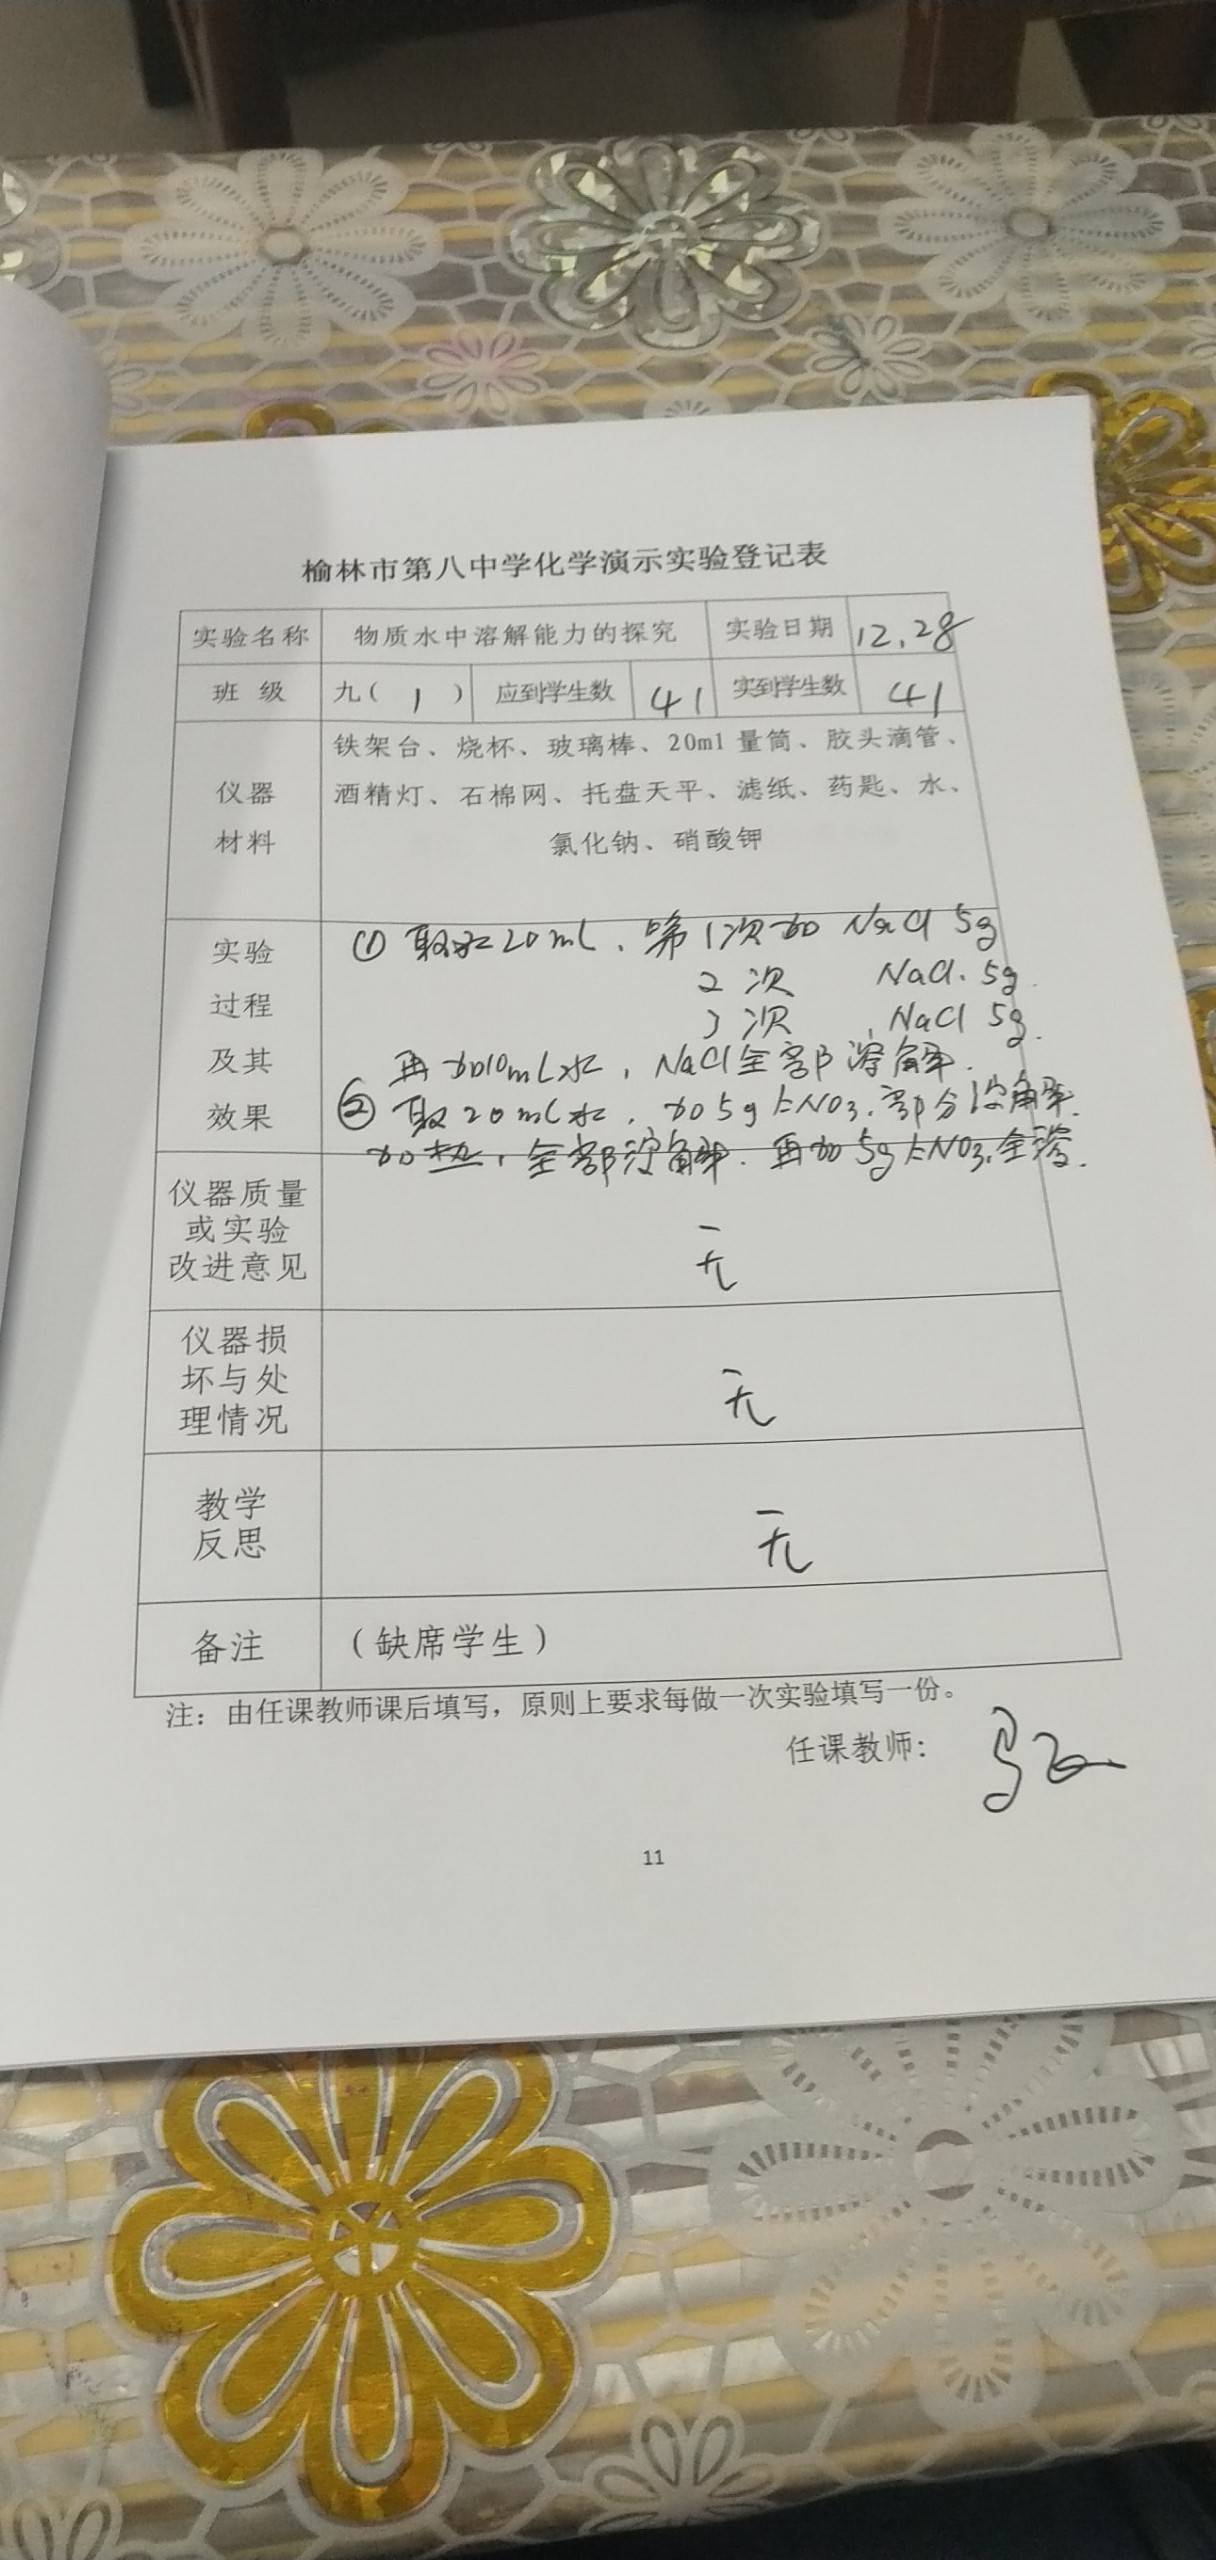 榆林市第八中学化学演示实验登记表
实验名称 物质水中溶解能力的探究 实验日期 12.28
班 级 九( 1 ) 应到学生数 41 实到学生数 41
仪器
材料
铁架台、烧杯、玻璃棒、20ml 量筒、胶头滴管、
酒精灯、石棉网、托盘天平、滤纸、药匙、水、
氯化钠、硝酸钾
实验
过程
及其
效果
① 取水20mL、第1次加 NaCl 5g
2次 NaCl. 5g.
3次, NaCl 5g.
再加10mL水, NaCl全部溶解.
② 取20mL水, 加5g KNO3.部分溶解.
加热, 全部溶解. 再加5g KNO3.全溶.
仪器质量
或实验
改进意见
无
仪器损
坏与处
理情况
无
教学
反思
无
备注 (缺席学生)
注:由任课教师课后填写,原则上要求每做一次实验填写一份。
任课教师:
11